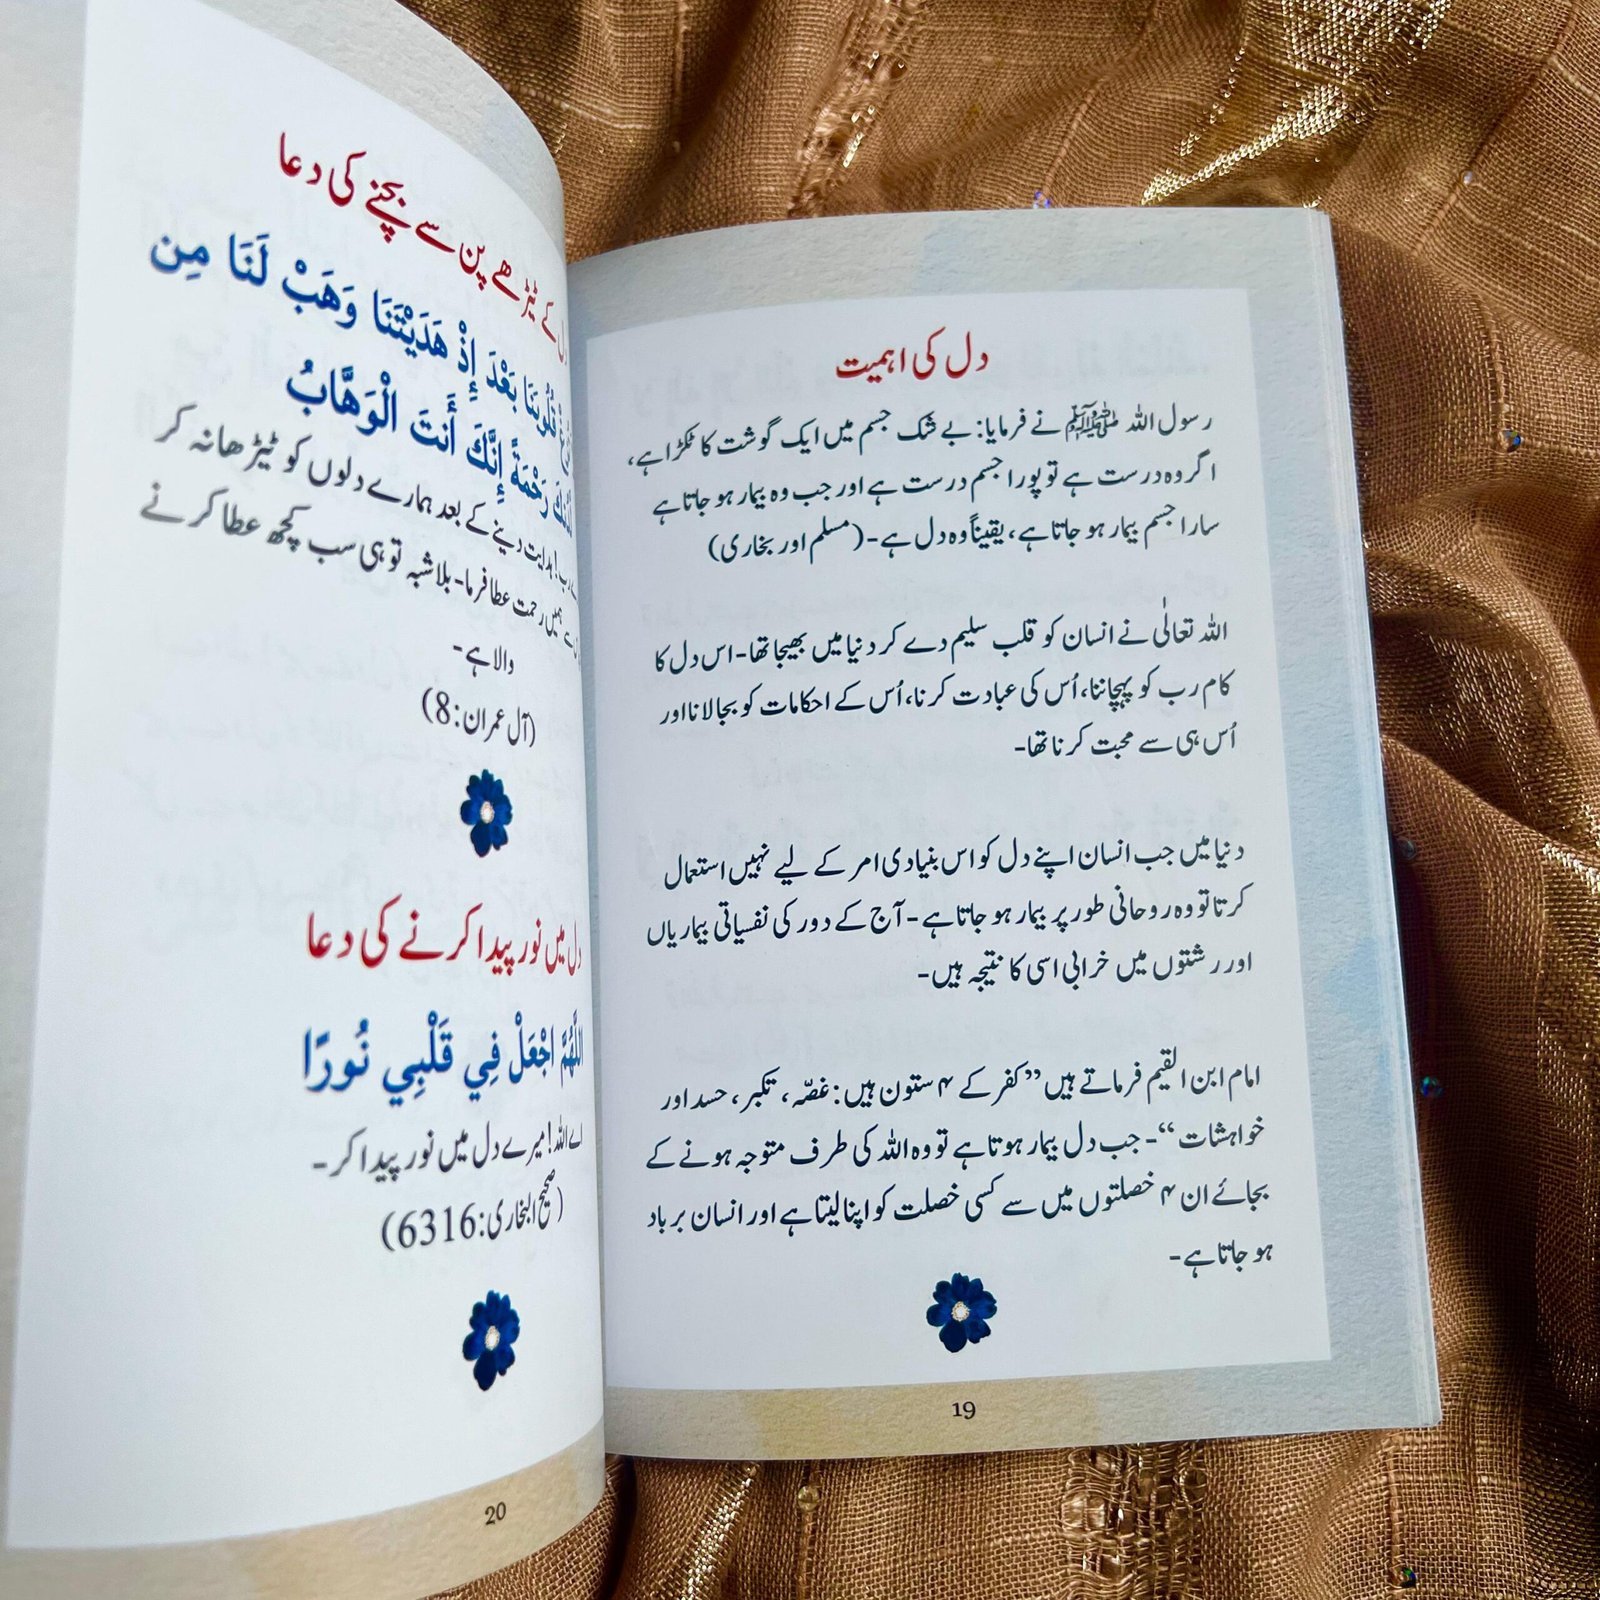 دل کی اہمیت
رسول اللہ ﷺ نے فرمایا: بے شک جسم میں ایک گوشت کا ٹکڑا ہے،
اگر وہ درست ہے تو پورا جسم درست ہے اور جب وہ بیمار ہو جاتا ہے
سارا جسم بیمار ہو جاتا ہے، یقیناً وہ دل ہے۔ (مسلم اور بخاری)
اللہ تعالٰی نے انسان کو قلب سلیم دے کر دنیا میں بھیجا تھا۔ اس دل کا
کام رب کو پہچاننا، اُس کی عبادت کرنا، اُس کے احکامات کو بجا لانا اور
اُس ہی سے محبت کرنا تھا۔
دنیا میں جب انسان اپنے دل کو اس بنیادی امر کے لیے نہیں استعمال
کرتا تو وہ روحانی طور پر بیمار ہو جاتا ہے۔ آج کے دور کی نفسیاتی بیماریاں
اور رشتوں میں خرابی اسی کا نتیجہ ہیں۔
امام ابن القیم فرماتے ہیں ”کفر کے ۴ ستون ہیں: غصّہ، تکبر، حسد اور
خواہشات“۔ جب دل بیمار ہوتا ہے تو وہ اللہ کی طرف متوجہ ہونے کے
بجائے ان ۴ خصلتوں میں سے کسی خصلت کو اپنا لیتا ہے اور انسان برباد
ہو جاتا ہے۔
19
کے ٹیڑھے پن سے بچنے کی دعا
قُلُوبَنَا بَعْدَ إِذْ هَدَيْتَنَا وَهَبْ لَنَا مِن
لَّدُنكَ رَحْمَةً إِنَّكَ أَنتَ الْوَهَّابُ
رب! ہدایت دینے کے بعد ہمارے دلوں کو ٹیڑھا نہ کر
ہمیں رحمت عطا فرما۔ بلاشبہ تو ہی سب کچھ عطا کرنے
والا ہے۔
(آل عمران: 8)
دل میں نور پیدا کرنے کی دعا
اللَّهُمَّ اجْعَلْ فِي قَلْبِي نُورًا
اے اللہ! میرے دل میں نور پیدا کر۔
(صحیح البخاری: 6316)
20